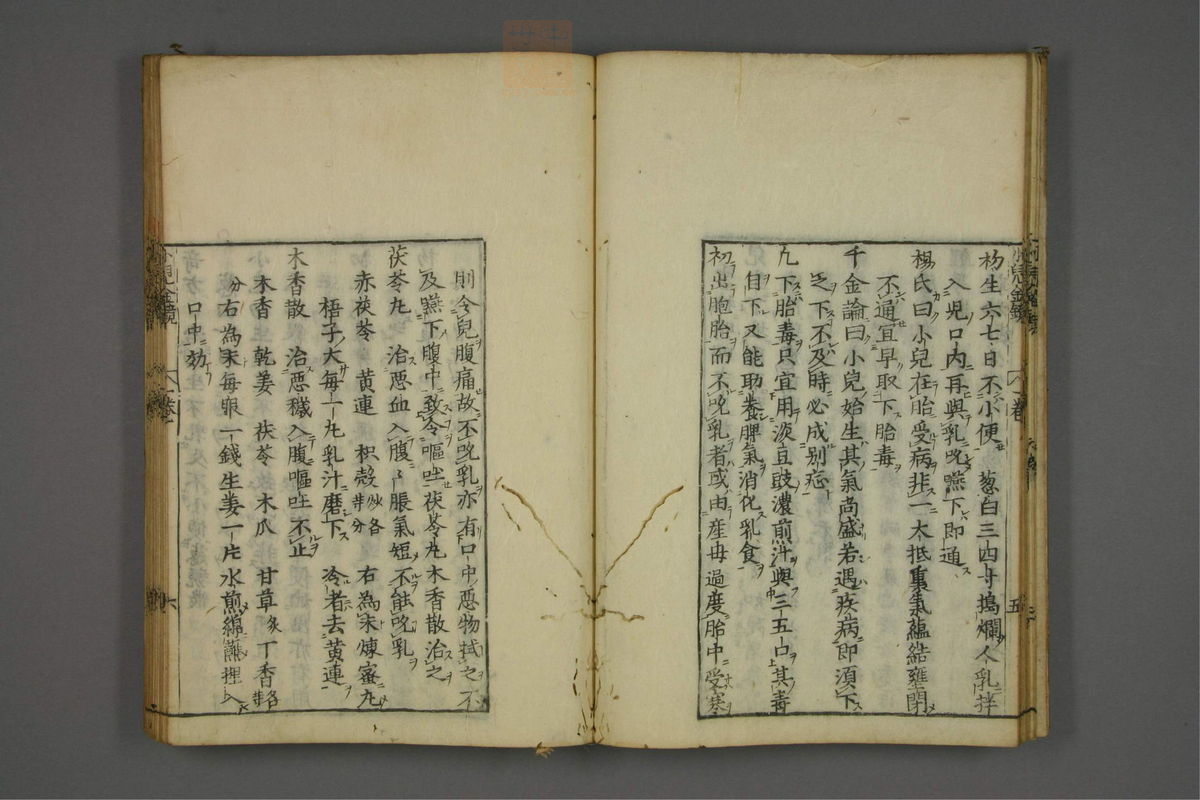 初生六七日不小便 葱白三四寸搗爛人乳拌
入児口内再與乳吮嚥下即通
楊氏曰小兒在胎受病非一大抵熏氣蘊結壅閉
不通宜早取下胎毒
千金論曰小兒始生其氣尚盛若遇疾病即須下
之下不及時必成别
凡下胎毒只宜用淡豆豉濃煎汁與三五口其毒
自下又能助養脾氣消化乳食
初出胞胎而不吮乳者或由産母過度胎中受寒
小兒全
卷
五
則令兒腹痛故不吮乳亦有口中惡物拭之不
及嚥下腹中致令嘔吐茯苓丸木香散治之
茯苓丸 治惡血入腹〻脹氣短不能吮乳
赤茯苓 黄連 枳殻炒各等分 右為末煉蜜丸
梧子大每一丸乳汁磨下 冷者去黄連
木香散 治惡穢入腹嘔吐不止
木香 乾姜 茯苓 木瓜 甘草炙 丁香各等
分 右為末每服一錢生姜一片水煎綿蘸捏入
口中効
小兒全
卷
六